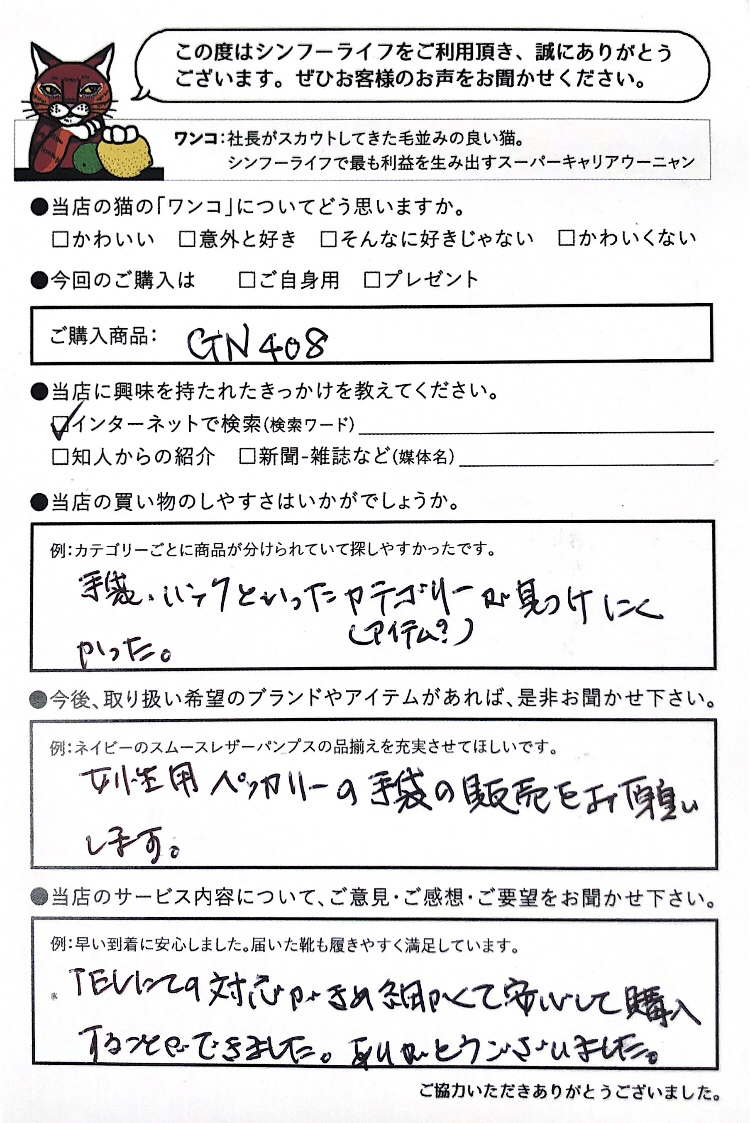 この度はシンフーライフをご利用頂き、誠にありがとう
ございます。ぜひお客様のお声をお聞かせください。
ワンコ：社長がスカウトしてきた毛並みの良い猫。
シンフーライフで最も利益を生み出すスーパーキャリアウーニャン
●当店の猫の「ワンコ」についてどう思いますか。
□かわいい □意外と好き □そんなに好きじゃない □かわいくない
●今回のご購入は □ご自身用 □プレゼント
ご購入商品： GN408
●当店に興味を持たれたきっかけを教えてください。
☑インターネットで検索(検索ワード)
□知人からの紹介 □新聞-雑誌など(媒体名)
●当店の買い物のしやすさはいかがでしょうか。
例：カテゴリーごとに商品が分けられていて探しやすかったです。
手袋、バッグといったカテゴリーが見つけにく
(アイテム?)
かった。
●今後、取り扱い希望のブランドやアイテムがあれば、是非お聞かせ下さい。
例：ネイビーのスムースレザーパンプスの品揃えを充実させてほしいです。
女性用ペッカリーの手袋の販売をお願い
します。
●当店のサービス内容について、ご意見・ご感想・ご要望をお聞かせ下さい。
例：早い到着に安心しました。届いた靴も履きやすく満足しています。
TELにての対応がきめ細かくて安心して購入
することができました。ありがとうございました。
ご協力いただきありがとうございました。